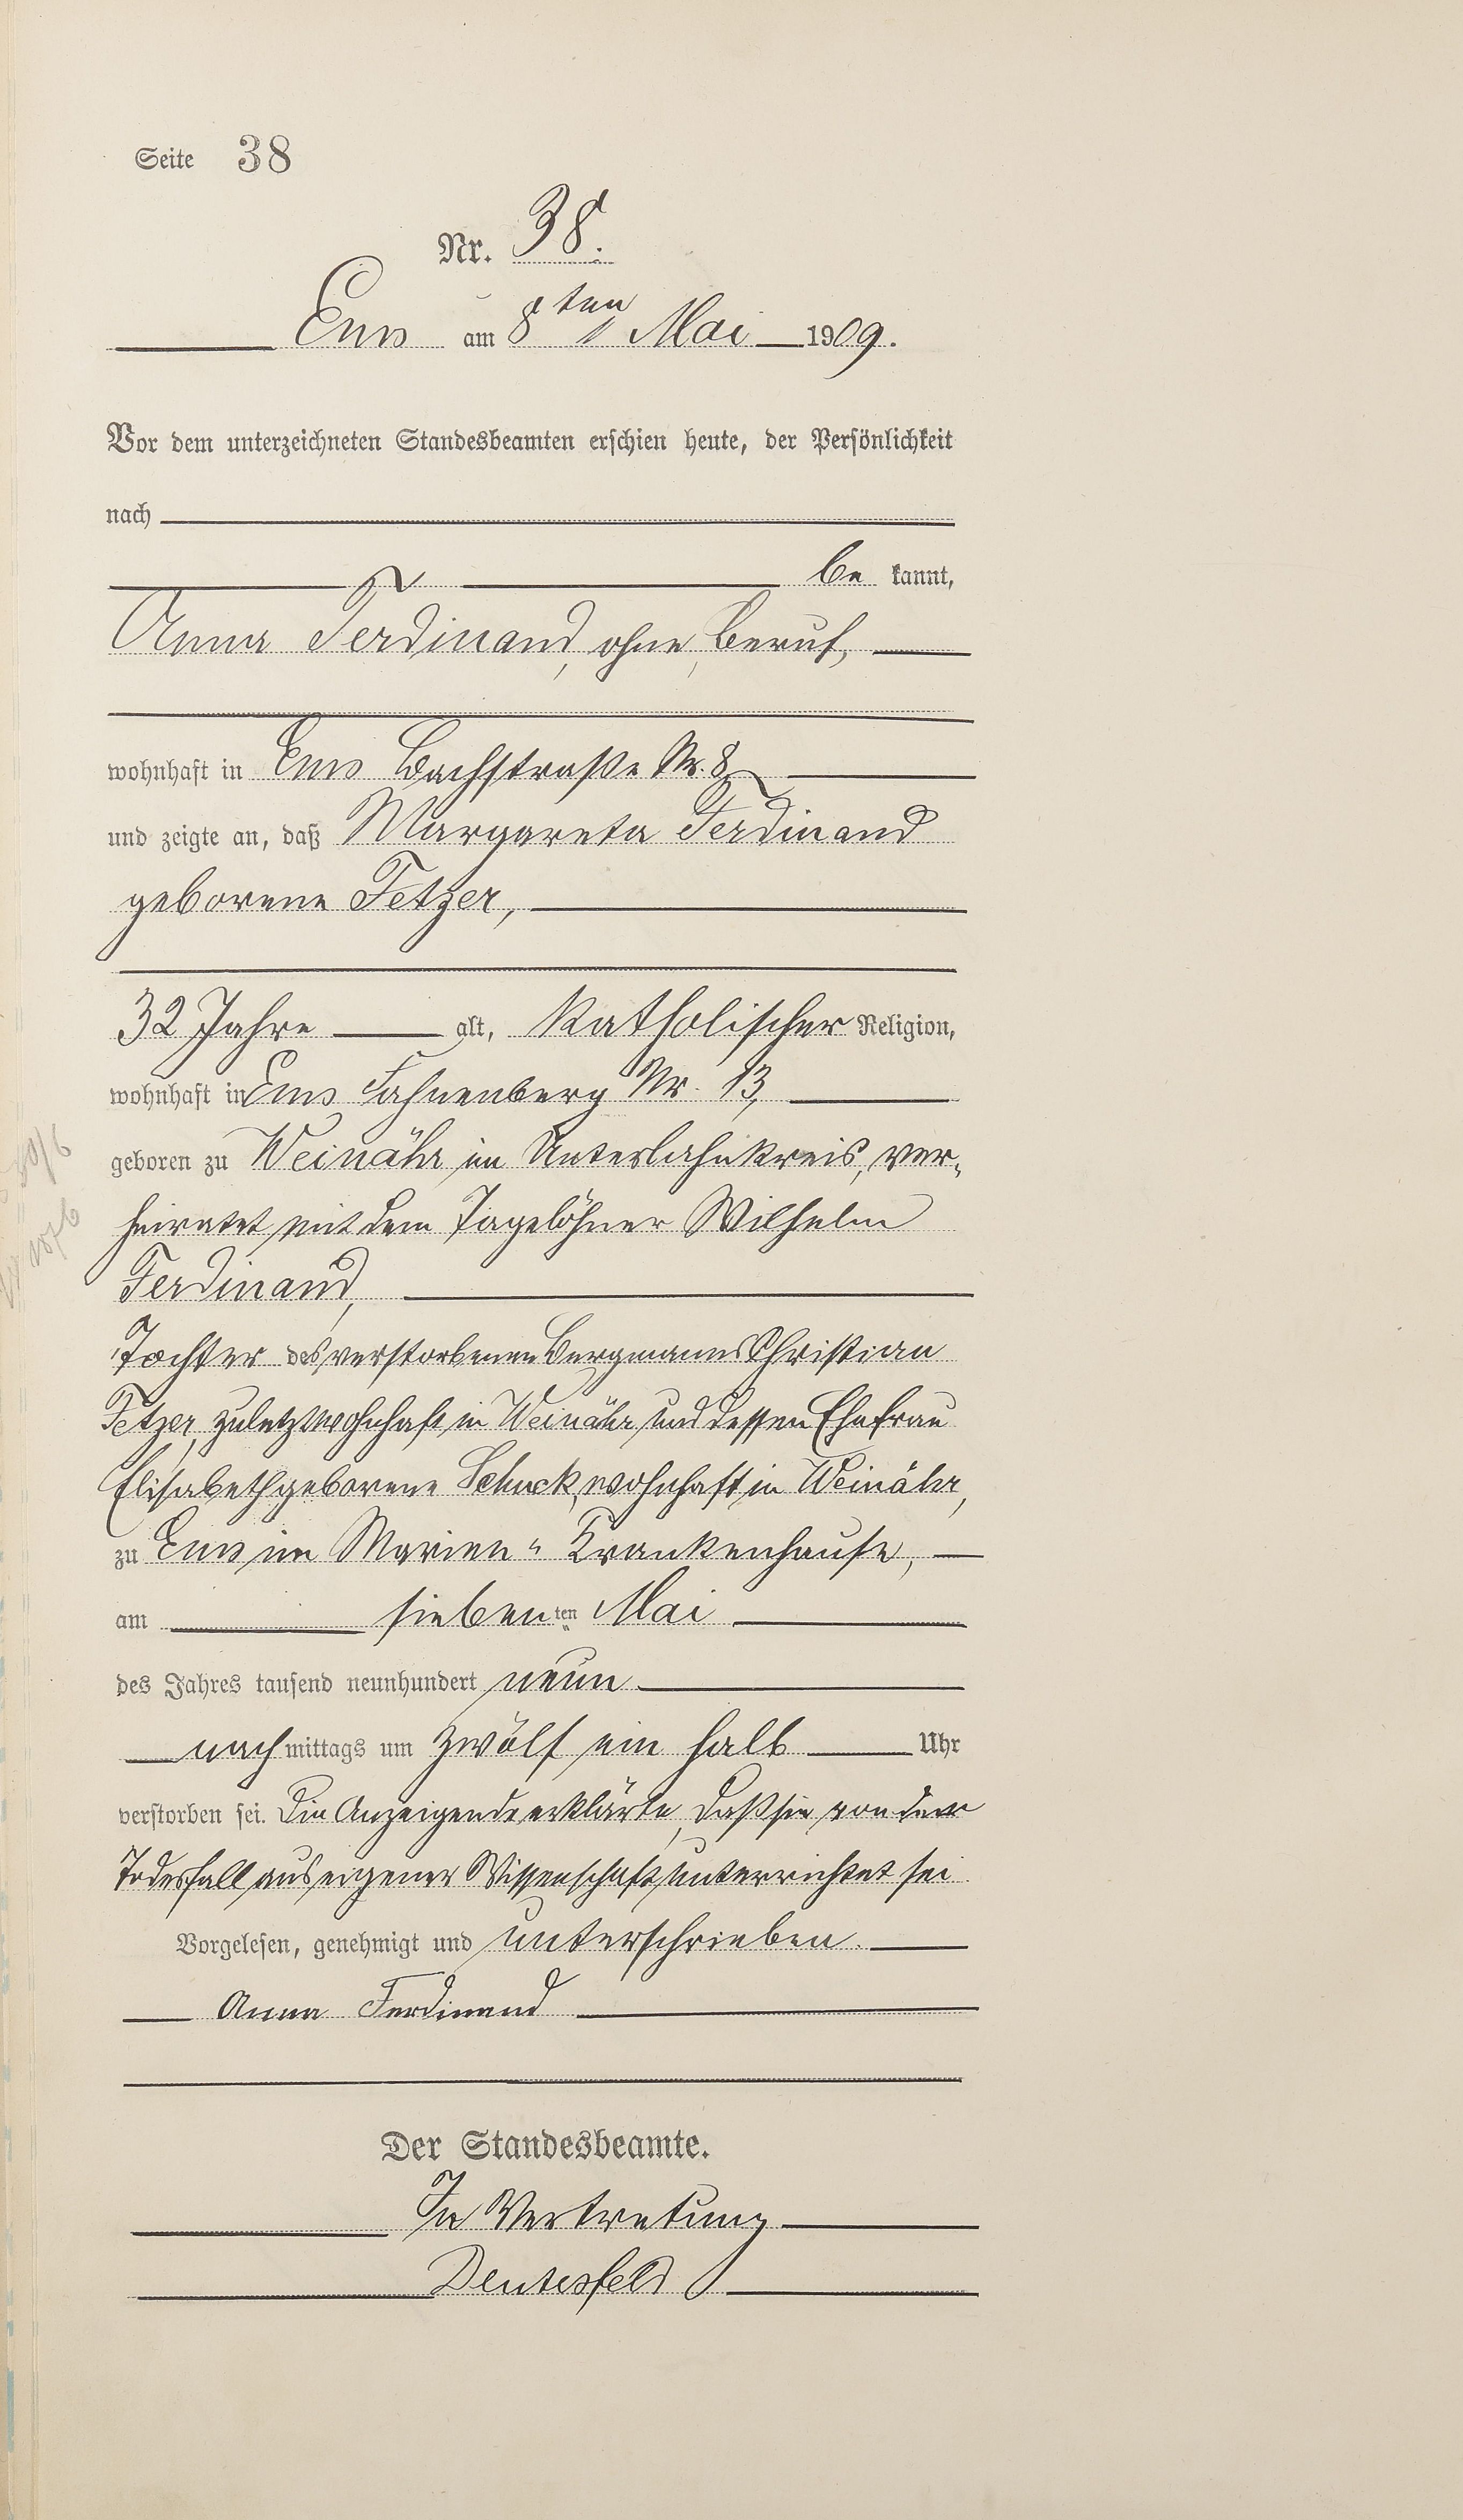 Seite 38
Nr. 38.
Ems am 8ten Mai 1909.
Vor dem unterzeichneten Standesbeamten erschien heute, der Persönlichkeit
nach
be kannt,
Anna Ferdinand, ohne Beruf,
wohnhaft in Ems Bachstraße Nr. 8
und zeigte an, daß Margareta Ferdinand
geborene Fetzer,
32 Jahre alt, katholischer Religion,
wohnhaft in Ems Fahnenberg Nr. 13,
geboren zu Weinähr im Unterlahnkreis, ver-
heiratet mit dem Tagelöhner Wilhelm
Ferdinand,
Tochter des verstorbenen Bergmanns Christian
Fetzer, zuletzt wohnhaft in Weinähr und dessen Ehefrau
Elisabeth geborene wohnhaft in Weinähr,
zu Ems im Marien-Krankenhause,
am siebenten Mai
des Jahres tausend neunhundert neun
nach mittags um zwölf ein halb Uhr
verstorben sei. Die Anzeigende erklärte, daß sie von dem
Todesfall aus eigener Wissenschaft unterrichtet sei
Vorgelesen, genehmigt und unterschrieben.
Anna Ferdinand
Der Standesbeamte.
In Vertretung